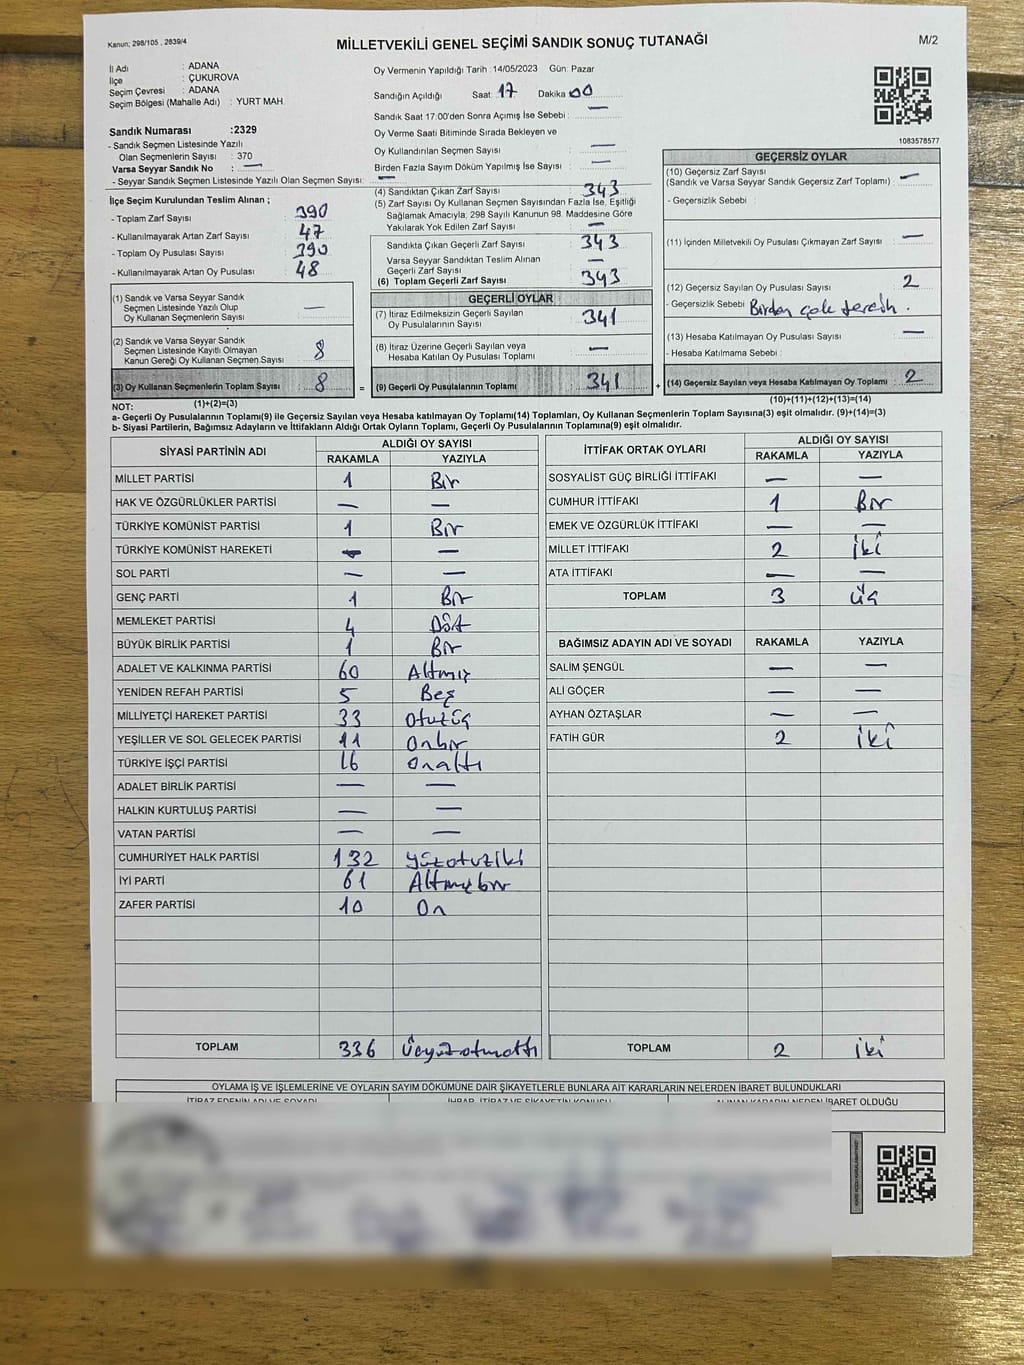 Kanun; 298/105 , 2839/4
MİLLETVEKİLİ GENEL SEÇİMİ SANDIK SONUÇ TUTANAĞI
M/2
İl Adı : ADANA
İlçe : ÇUKUROVA
Seçim Çevresi : ADANA
Seçim Bölgesi (Mahalle Adı) : YURT MAH.
Sandık Numarası :2329
- Sandık Seçmen Listesinde Yazılı
Olan Seçmenlerin Sayısı : 370
Varsa Seyyar Sandık No : —
- Seyyar Sandık Seçmen Listesinde Yazılı Olan Seçmen Sayısı: —
İlçe Seçim Kurulundan Teslim Alınan ;
- Toplam Zarf Sayısı : 390
- Kullanılmayarak Artan Zarf Sayısı : 47
- Toplam Oy Pusulası : 390
- Kullanılmayarak Artan Oy Pusulası : 48
(1) Sandık ve Varsa Seyyar Sandık
Seçmen Listesinde Yazılı Olup
Oy Kullanan Seçmenlerin Sayısı : —
(2) Sandık ve Varsa Seyyar Sandık
Seçmen Listesinde Kayıtlı Olmayan
Kanun Gereği Oy Kullanan Seçmen Sayısı : 8
(3) Oy Kullanan Seçmenlerin Toplam Sayısı : 8 =
(1)+(2)=(3)
Oy Vermenin Yapıldığı Tarih : 14/05/2023 Gün: Pazar
Sandığın Açıldığı Saat 17 Dakika 00
Sandık Saat 17.00'den Sonra Açımış İse Sebebi : —
Oy Verme Saati Bitiminde Sırada Bekleyen ve
Oy Kullandırılan Seçmen Sayısı —
Birden Fazla Sayım Döküm Yapılmış İse Sayısı : —
(4) Sandıktan Çıkan Zarf Sayısı : 343
(5) Zarf Sayısı Oy Kullanan Seçmen Sayısından Fazla İse, Eşitliği
Sağlamak Amacıyla, 298 Sayılı Kanunun 98. Maddesine Göre
Yakılarak Yok Edilen Zarf Sayısı : —
Sandıkta Çıkan Geçerli Zarf Sayısı : 343
Varsa Seyyar Sandıktan Teslim Alınan
Geçerli Zarf Sayısı : —
(6) Toplam Geçerli Zarf Sayısı : 343
GEÇERLİ OYLAR
(7) İtiraz Edilmeksizin Geçerli Sayılan
Oy Pusulalarının Sayısı : 341
(8) İtiraz Üzerine Geçerli Sayılan veya
Hesaba Katılan Oy Pusulası Toplamı : —
(9) Geçerli Oy Pusulalarının Toplamı : 341 +
1083578577
GEÇERSİZ OYLAR
(10) Geçersiz Zarf Sayısı
(Sandık ve Varsa Seyyar Sandık Geçersiz Zarf Toplamı) : —
- Geçersizlik Sebebi :
(11) İçinden Milletvekili Oy Pusulası Çıkmayan Zarf Sayısı : —
(12) Geçersiz Sayılan Oy Pusulası Sayısı : 2
- Geçersizlik Sebebi : Birden çok tercih.
(13) Hesaba Katılmayan Oy Pusulası Sayısı : —
- Hesaba Katılmama Sebebi :
(14) Geçersiz Sayılan veya Hesaba Katılmayan Oy Toplamı : 2
(10)+(11)+(12)+(13)=(14)
NOT:
a- Geçerli Oy Pusulalarının Toplamı(9) ile Geçersiz Sayılan veya Hesaba katılmayan Oy Toplamı(14) Toplamları, Oy Kullanan Seçmenlerin Toplam Sayısına(3) eşit olmalıdır. (9)+(14)=(3)
b- Siyasi Partilerin, Bağımsız Adayların ve İttifakların Aldığı Ortak Oyların Toplamı, Geçerli Oy Pusulalarının Toplamına(9) eşit olmalıdır.
SİYASİ PARTİNİN ADI ALDIĞI OY SAYISI
RAKAMLA YAZIYLA
MİLLET PARTİSİ 1 Bir
HAK VE ÖZGÜRLÜKLER PARTİSİ — —
TÜRKİYE KOMÜNİST PARTİSİ 1 Bir
TÜRKİYE KOMÜNİST HAREKETİ — —
SOL PARTİ — —
GENÇ PARTİ 1 Bir
MEMLEKET PARTİSİ 4 Dört
BÜYÜK BİRLİK PARTİSİ 1 Bir
ADALET VE KALKINMA PARTİSİ 60 Altmış
YENİDEN REFAH PARTİSİ 5 Beş
MİLLİYETÇİ HAREKET PARTİSİ 33 Otuzüç
YEŞİLLER VE SOL GELECEK PARTİSİ 11 Onbir
TÜRKİYE İŞÇİ PARTİSİ 16 Onaltı
ADALET BİRLİK PARTİSİ — —
HALKIN KURTULUŞ PARTİSİ — —
VATAN PARTİSİ — —
CUMHURİYET HALK PARTİSİ 132 Yüzotuziki
İYİ PARTİ 61 Altmışbir
ZAFER PARTİSİ 10 On
TOPLAM 336 Üçyüzotuzaltı
İTTİFAK ORTAK OYLARI ALDIĞI OY SAYISI
RAKAMLA YAZIYLA
SOSYALİST GÜÇ BİRLİĞİ İTTİFAKI — —
CUMHUR İTTİFAKI 1 Bir
EMEK VE ÖZGÜRLÜK İTTİFAKI — —
MİLLET İTTİFAKI 2 İki
ATA İTTİFAKI — —
TOPLAM 3 Üç
BAĞIMSIZ ADAYIN ADI VE SOYADI RAKAMLA YAZIYLA
SALİM ŞENGÜL — —
ALİ GÖÇER — —
AYHAN ÖZTAŞLAR — —
FATİH GÜR 2 İki
TOPLAM 2 İki
OYLAMA İŞ VE İŞLEMLERİNE VE OYLARIN SAYIM DÖKÜMÜNE DAİR ŞİKAYETLERLE BUNLARA AİT KARARLARIN NELERDEN İBARET BULUNDUKLARI
İTİRAZ EDENİN ADI VE SOYADI İHBAR, İTİRAZ VE ŞİKAYETİN KONUSU ALINAN KARARIN NEDEN İBARET OLDUĞU